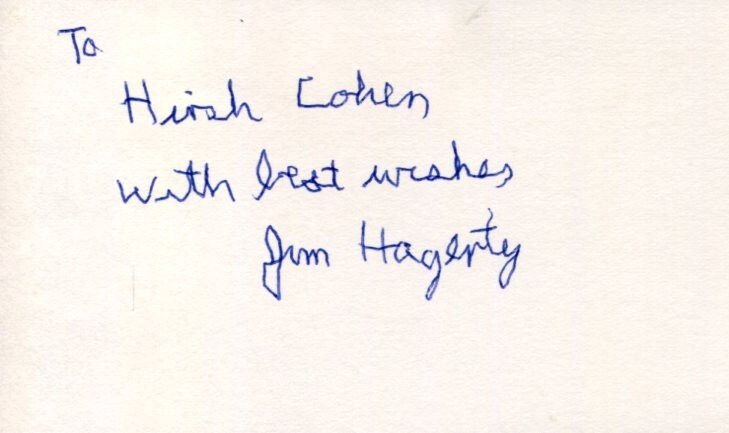 To
Hirsh Cohen
with best wishes
Jim Hagerty